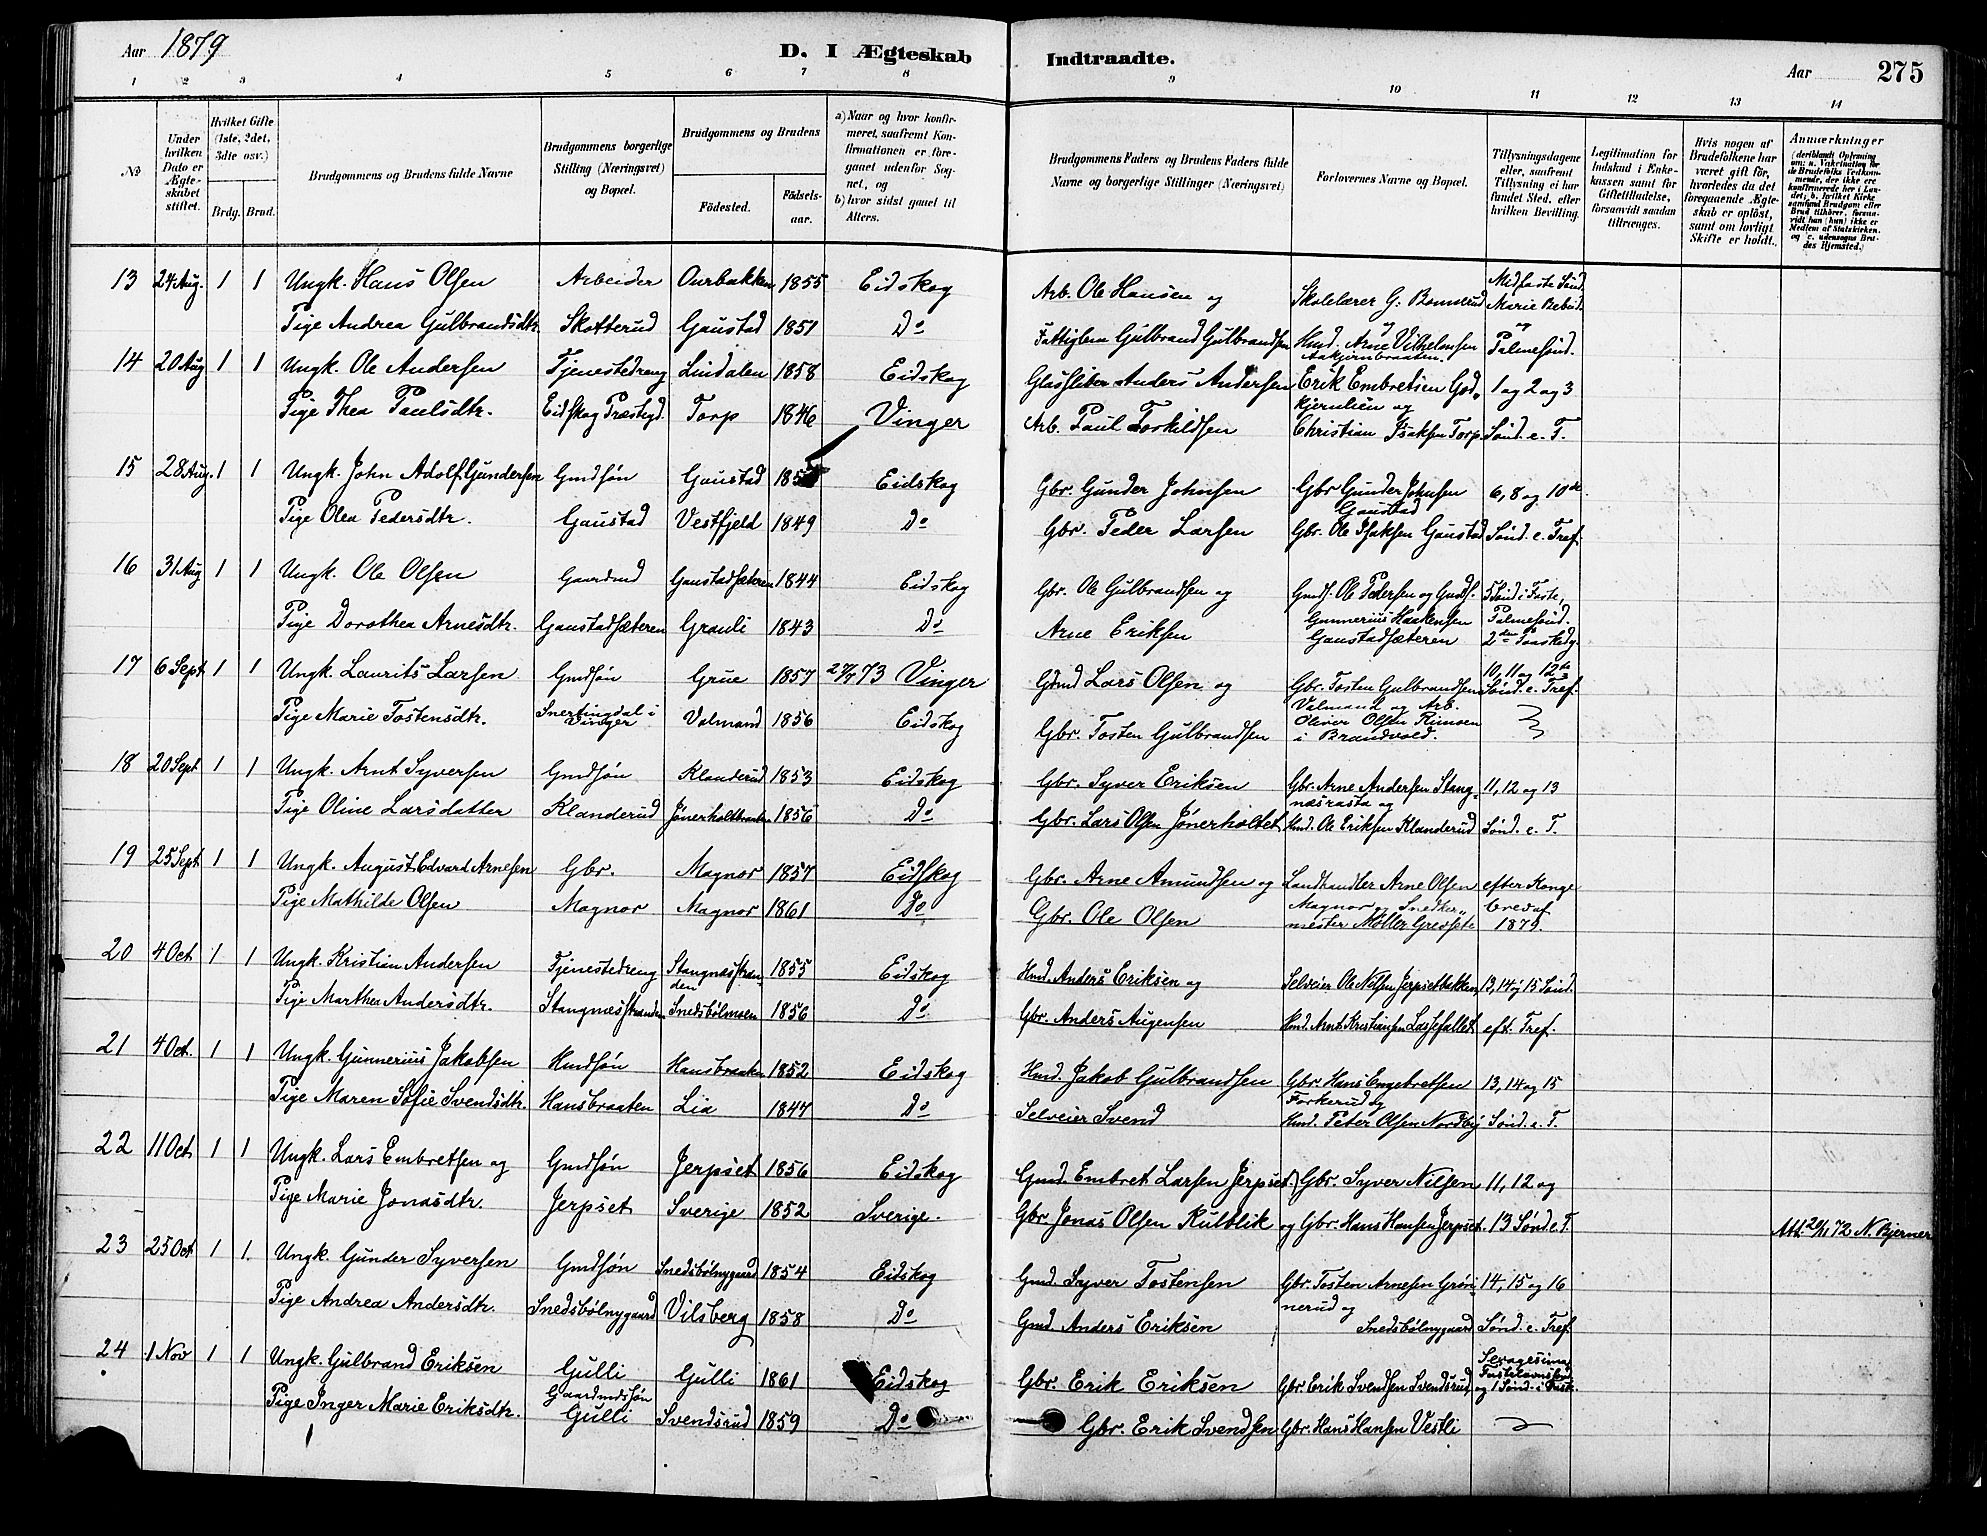 Aar 1879 D. I Ægteskab Indtraadte. Aar 275
1 2 3 4 5 6 7 8 9 10 11 12 13 14
No
Under hvilken Dato er Ægteskabet stiftet.
Hvilket Gifte (1ste, 2det, 3die osv.)
Brdg. Brud.
Brudgommens og Brudens fulde Navne
Brudgommens borgerlige Stilling (Næringsvei) og Bopæl.
Brudgommens og Brudens
Fødested. Fødselsaar.
a) Naar og hvor konfirmeret, saafremt Konfirmationen er foregaaet udenfor Sognet, og
b) hvor sidst gaaet til Alters.
Brudgommens Faders og Brudens Faders fulde Navne og borgerlige Stillinger (Næringsvei)
Forlovernes Navne og Bopæl.
Tillysningsdagene eller, saafremt Tillysning ei har fundet Sted, efter hvilken Bevilling.
Legitimation for Indskud i Enkekassen samt for Giftetilladelse, forsaavidt saadan tiltrænges.
Hvis nogen af Brudefolkene har været gift før, hvorledes da det foregaaende Ægteskab er opløst, samt om lovligt Skifte er holdt.
Anmærkninger
13 24 Aug. 1 1 Ungk. Hans Olsen Arbeider Ourbakken 1855 Eidskog Arb. Ole Hansen og Skolelærer G. Bonnerud Midfaste Sønd. Marie Bebud.
Pige Andrea Gulbrandsdtr. Skotterud Gaustad 1851 Do Fattiglem Gulbrand Gulbrandsen Hmd. Arne Vilhelmsen og Palmesønd.
14 20 Aug 1 1 Ungk. Ole Andersen Tjenestedreng Lindalen 1858 Eidskog Glassliber Anders Andersen Erik Embretsen God- 1 og 2 og 3
Pige Thea Paulsdtr. Eidskog Præstegd. Torp 1846 Vinger Arb. Paul Torkildsen kjernlien og Christian Isaksen Torp Sønd. e. T.
15 28 Aug. 1 1 Ungk. John Adolf Gundersen Gmdsøn Gaustad Eidskog Gbr. Gunder Johnsen Gbr Gunder Johnsen Gaustad 6, 8 og 10de
Pige Olea Pedersdtr. Gaustad Vestfjeld 1849 Do Gbr. Peder Larsen Gbr. Ole Isaksen Gaustad Sønd. e. Tref.
16 31 Aug 1 1 Ungk. Ole Olsen Gaardmd Gaustadsæteren 1844 Eidskog Gbr. Ole Gulbrandsen og Gmdf. Ole Pedersen og Gmdf. Sønd i Faste,
Pige Dorothea Arnesdtr. Gaustadsæteren Grauli 1843 Do Arne Eriksen Gunnerius Haakensen Gaustadsæteren Palmesønd. 2den Paaskedg.
17 6 Sept 1 1 Ungk. Laurits Larsen Gmdsøn Grue 1857 73 Vinger Gdmd Lars Olsen og Gbr. Tosten Gulbrandsen 10, 11 og 12te Sønd. e. Tref.
Pige Marie Tostensdtr. Snertingdal i Vinger Valmand 1856 Eidskog Gbr. Tosten Gulbrandsen Valmand og Arb. Oliver Olsen Rimoen i Brandvold.
18 20 Sept 1 1 Ungk. Arnt Syversen Gmdsøn Klanderud 1853 Eidskog Gbr. Syver Eriksen Gbr. Arne Andersen Stang- 11, 12 og 13
Pige Oline Larsdatter Klanderud 1856 Do Gbr. Lars Olsen Jønerholtet næsrasta og Hmd. Ole Eriksen Klanderud Sønd. e. T.
19 25 Sept 1 1 Ungk. August Edvard Arnesen Gbr. Magnor 1857 Eidskog Gbr. Arne Amundsen og Landhandler Arne Olsen efter Konge-
Pige Mathilde Olsen Magnor Magnor 1861 Do Gbr. Ole Olsen Magnor og Snedker- mester Møller brev af 1879.
20 4 Oct 1 1 Ungk. Kristian Andersen Tjenestedreng Stangnæsstran- den 1855 Eidskog Hmd. Anders Eriksen og Selveier Ole Nilsen Jerpsetbakken 13, 14 og 15 Sønd.
Pige Marthea Andersdtr. Stangnæsstranden Snedsbølmoen 1856 Do Gbr. Anders Augensen Hmd. Arnt Kristiansen Lassefallet eft. Tref.
21 4 Oct. 1 1 Ungk. Gunnerius Jakobsen Hmdsøn Hansbraaten 1852 Eidskog Hmd. Jakob Gulbrandsen Gbr. Hans Engebretsen 13, 14 og 15
Pige Maren Sofie Svendsdtr. Hansbraaten Lia 1847 Do Selveier Svend Forkerud og Hmd. Peter Olsen Nordby Sønd. e. T.
22 11 Oct 1 1 Ungk. Lars Embretsen og Gmdsøn Jerpset 1856 Eidskog Gmd. Embret Larsen Jerpset. Gbr. Syver Nilsen 11, 12 og
Pige Marie Jonasdtr. Jerpset Sverige 1852 Sverige. Gbr. Jonas Olsen Kulblik og Gbr. Hans Hansen Jerpset 13 Sønd. e. T. Att. 72 N. Bjerner
23 25 Oct 1 1. Ungk. Gunder Syversen Gmdsøn Snedsbølnygaard 1854 Eidskog Gmd. Syver Tostensen Gbr. Tosten Arnesen Grøn- 14, 15 og 16
Pige Andrea Andersdtr. Snedsbølnygaard Vilsberg 1858 Do Gmd. Anders Eriksen nerud og Snedsbølnygaard Sønd. e. Tref.
24 1 Nov 1 1 Ungk. Gulbrand Eriksen Gulli Gulli 1861 Eidskog Gbr. Erik Eriksen Gbr. Erik Svendsen Svendsrud Sexagesima, Fastelavnssønd. og 1 Sønd. i Fast.
Pige Inger Marie Eriksdtr. Gaardmdsøn Gulli Svendsrud 1859 Do Gbr. Erik Svendsen Gbr. Hans Hansen Vestli